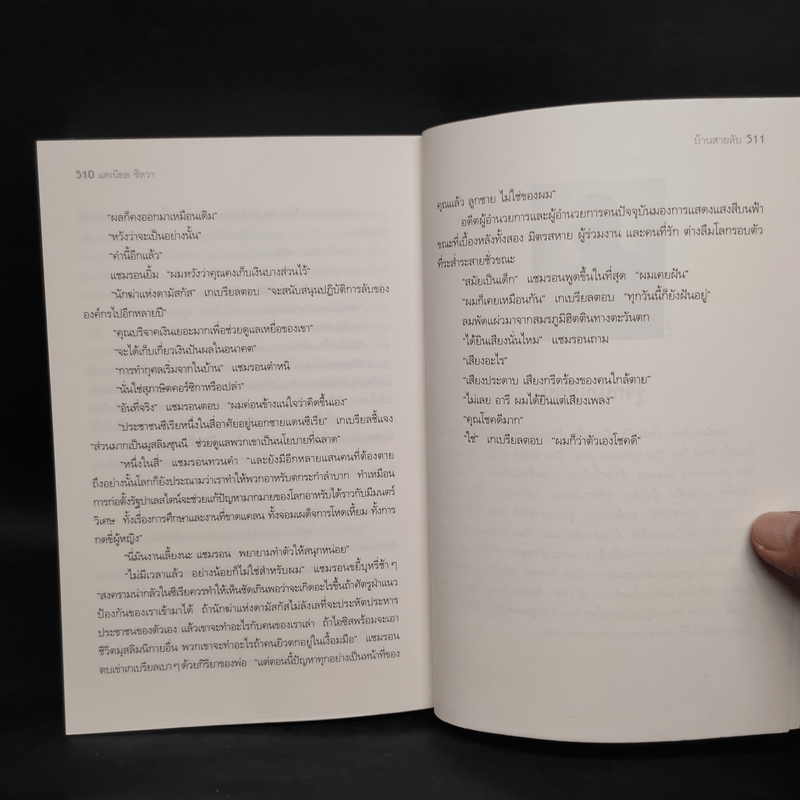 510 แดเนียล ซิลวา
"ผลก็คงออกมาเหมือนเดิม"
"หวังว่าจะเป็นอย่างนั้น"
"คำนี้อีกแล้ว"
แชมรอนยิ้ม "ผมหวังว่าคุณคงเก็บเงินบางส่วนไว้"
"นักฆ่าแห่งดามัสกัส" เกเบรียลตอบ "จะสนับสนุนปฏิบัติการลับของ
องค์กรไปอีกหลายปี"
"คุณบริจาคเงินเยอะมากเพื่อช่วยดูแลเหยื่อของเขา"
"จะได้เก็บเกี่ยวเงินปันผลในอนาคต"
"การทำกุศลเริ่มจากในบ้าน" แชมรอนตำหนิ
"นั่นใช่สุภาษิตคอร์ซิกาหรือเปล่า"
"อันที่จริง" แชมรอนตอบ "ผมค่อนข้างแน่ใจว่าคิดขึ้นเอง"
"ประชาชนซีเรียหนึ่งในสี่อาศัยอยู่นอกชายแดนซีเรีย" เกเบรียลชี้แจง
"ส่วนมากเป็นมุสลิมซุนนี ช่วยดูแลพวกเขาเป็นนโยบายที่ฉลาด"
"หนึ่งในสี่" แชมรอนทวนคำ "และยังมีอีกหลายแสนคนที่ต้องตาย
ถึงอย่างนั้นโลกก็ยังประณามว่าเราทำให้พวกอาหรับตกระกำลำบาก ทำเหมือน
การก่อตั้งรัฐปาเลสไตน์จะช่วยแก้ปัญหามากมายของโลกอาหรับได้ราวกับมีมนตร์
วิเศษ ทั้งเรื่องการศึกษาและงานที่ขาดแคลน ทั้งจอมเผด็จการโหดเหี้ยม ทั้งการ
กดขี่ผู้หญิง"
"นี่มันงานเลี้ยงนะ แชมรอน พยายามทำตัวให้สนุกหน่อย"
"ไม่มีเวลาแล้ว อย่างน้อยก็ไม่ใช่สำหรับผม" แชมรอนขยี้บุหรี่ช้า ๆ
"สงครามน่ากลัวในซีเรียควรทำให้เห็นชัดเกินพอว่าจะเกิดอะไรขึ้นถ้าศัตรูฝ่าแนว
ป้องกันของเราเข้ามาได้ ถ้านักฆ่าแห่งดามัสกัสไม่ลังเลที่จะประหัตประหาร
ประชาชนของตัวเอง แล้วเขาจะทำอะไรกับคนของเราเล่า ถ้าไอซิสพร้อมจะเอา
ชีวิตมุสลิมนิกายอื่น พวกเขาจะทำอะไรถ้าคนยิวตกอยู่ในเงื้อมมือ" แชมรอน
ตบเข่าเกเบรียลเบา ๆ ด้วยกิริยาของพ่อ "แต่ตอนนี้ปัญหาทุกอย่างเป็นหน้าที่ของ
บ้านสายลับ 511
คุณแล้ว ลูกชาย ไม่ใช่ของผม"
อดีตผู้อำนวยการและผู้อำนวยการคนปัจจุบันมองการแสดงแสงสีบนฟ้า
ขณะที่เบื้องหลังทั้งสอง มิตรสหาย ผู้ร่วมงาน และคนที่รัก ต่างลืมโลกรอบตัว
ที่ระส่ำระสายชั่วขณะ
"สมัยเป็นเด็ก" แชมรอนพูดขึ้นในที่สุด "ผมเคยฝัน"
"ผมก็เคยเหมือนกัน" เกเบรียลตอบ "ทุกวันนี้ก็ยังฝันอยู่"
ลมพัดแผ่วมาจากสมรภูมิฮิตตินทางตะวันตก
"ได้ยินเสียงนั่นไหม" แชมรอนถาม
"เสียงอะไร"
"เสียงประดาบ เสียงกรีดร้องของคนใกล้ตาย"
"ไม่เลย อารี ผมได้ยินแต่เสียงเพลง"
"คุณโชคดีมาก"
"ใช่" เกเบรียลตอบ "ผมก็ว่าตัวเองโชคดี"